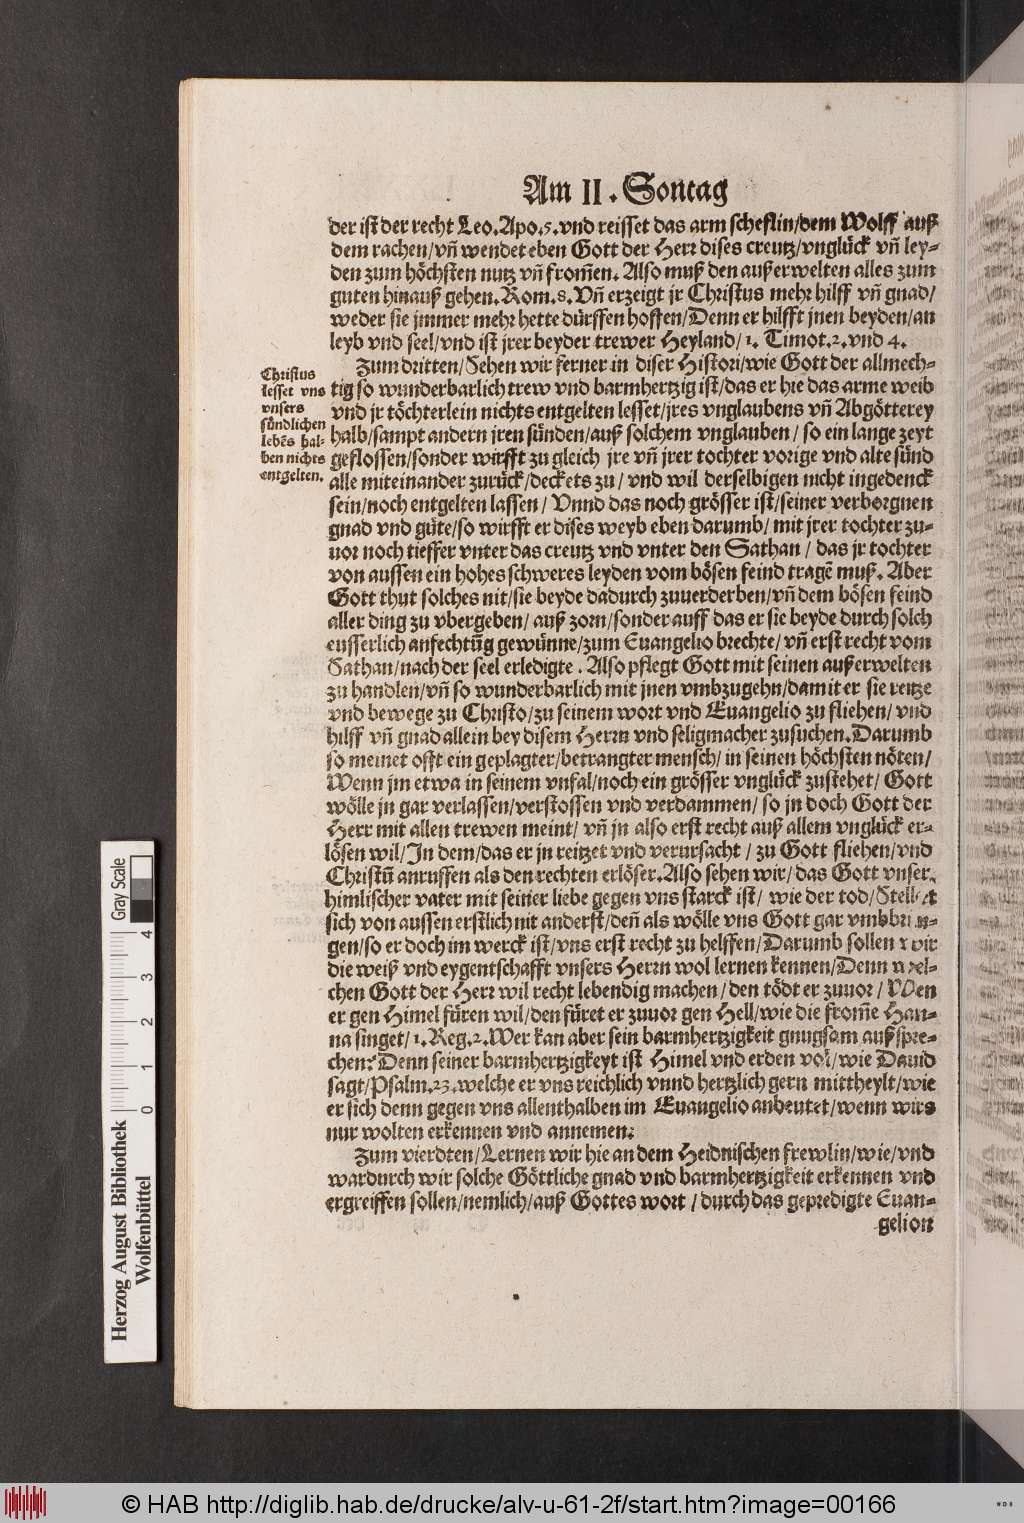 Am II. Sontag
der ist der recht Leo. Apo. 5. vnd reisset das arm scheflin/dem Wolff auß
dem rachen/vñ wendet eben Gott der Herr dises creutz/vnglück vñ ley-
den zum höchsten nutz vñ from̃en. Also muß den außerwelten alles zum
guten hinauß gehen. Rom. 8. Vñ erzeigt jr Christus mehr hilff vñ gnad/
weder sie jmmer mehr hette dürffen hoffen/Denn er hilfft jnen beyden/an
leyb vnd seel/vnd ist jrer beyder trewer Heyland/ 1. Timot. 2. vnd 4.
Zum dritten/Sehen wir ferner in diser Histori/wie Gott der allmech-
tig so wunderbarlich trew vnd barmhertzig ist/das er hie das arme weib
vnd jr töchterlein nichts entgelten lesset/jres vnglaubens vñ Abgötterey
halb/sampt andern jren sünden/auß solchem vnglauben/ so ein lange zeyt
geflossen/sonder wirfft zu gleich jre vñ jrer tochter vorige vnd alte sünd
alle miteinander zurück/deckets zu/ vnd wil derselbigen nicht ingedenck
sein/noch entgelten lassen/ Vnnd das noch grösser ist/seiner verborgnen
gnad vnd güte/so wirfft er dises weyb eben darumb/ mit jrer tochter zu-
uor noch tieffer vnter das creutz vnd vnter den Sathan/ das jr tochter
von aussen ein hohes schweres leyden vom bösen feind tragẽ muß. Aber
Gott thut solches nit/sie beyde dadurch zuuerderben/vñ dem bösen feind
aller ding zu vbergeben/ auß zorn/sonder auff das er sie beyde durch solch
eusserlich anfechtũg gewünne/zum Euangelio brechte/ vñ erst recht vom
Sathan/nach der seel erledigte. Also pflegt Gott mit seinen außerwelten
zu handlen/vñ so wunderbarlich mit jnen vmbzugehn/damit er sie reitze
vnd bewege zu Christo/zu seinem wort vnd Euangelio zu fliehen/ vnd
hilff vñ gnad allein bey disem Herrn vnd seligmacher zusuchen. Darumb
so meinet offt ein geplagter/betrangter mensch/ in seinen höchsten nöten/
Wenn jm etwa in seinem vnfal/noch ein grösser vnglück zustehet/ Gott
wölle jn gar verlassen/verstossen vnd verdammen/ so jn doch Gott der
Herr mit allen trewen meint/ vñ jn also erst recht auß allem vnglück er-
lösen wil/In dem/das er jn reitzet vnd verursacht/ zu Gott fliehen/vnd
Christũ anruffen als den rechten erlöser. Also sehen wir/ das Gott vnser
himlischer vater mit seiner liebe gegen vns starck ist/ wie der tod/
sich von aussen erstlich nit anderst/deñ als wölle vns Gott gar vmbbrin-
gen/so er doch im werck ist/vns erst recht zu helffen/Darumb sollen wir
die weiß vnd eygentschafft vnsers Herrn wol lernen kennen/Denn wel-
chen Gott der Herr wil recht lebendig machen/den tödt er zuuor/ Wen
er gen Himel füren wil/den füret er zuuor gen Hell/wie die from̃e Han-
na singet/ 1. Reg. 2. Wer kan aber sein barmhertzigkeit gnugsam außspre-
chen? Denn seiner barmhertzigkeyt ist Himel vnd erden vol/wie Dauid
sagt/Psalm. 23. welche er vns reichlich vnnd hertzlich gern mittheylt/wie
er sich denn gegen vns allenthalben im Euangelio anbeutet/wenn wirs
nur wolten erkennen vnd annemen:
Zum vierdten/Lernen wir hie an dem Heidnischen frewlin/wie/vnd
wardurch wir solche Göttliche gnad vnd barmhertzigkeit erkennen vnd
ergreiffen sollen/nemlich/auß Gottes wort/ durch das gepredigte Euan-
gelion
Christus
lesset vns
vnsers
sündlichen
lebẽs hal-
ben nichts
entgelten.
Herzog August Bibliothek
Wolfenbüttel
0 1 2 3 4
Gray Scale
© HAB http://diglib.hab.de/drucke/alv-u-61-2f/start.htm?image=00166
WDB